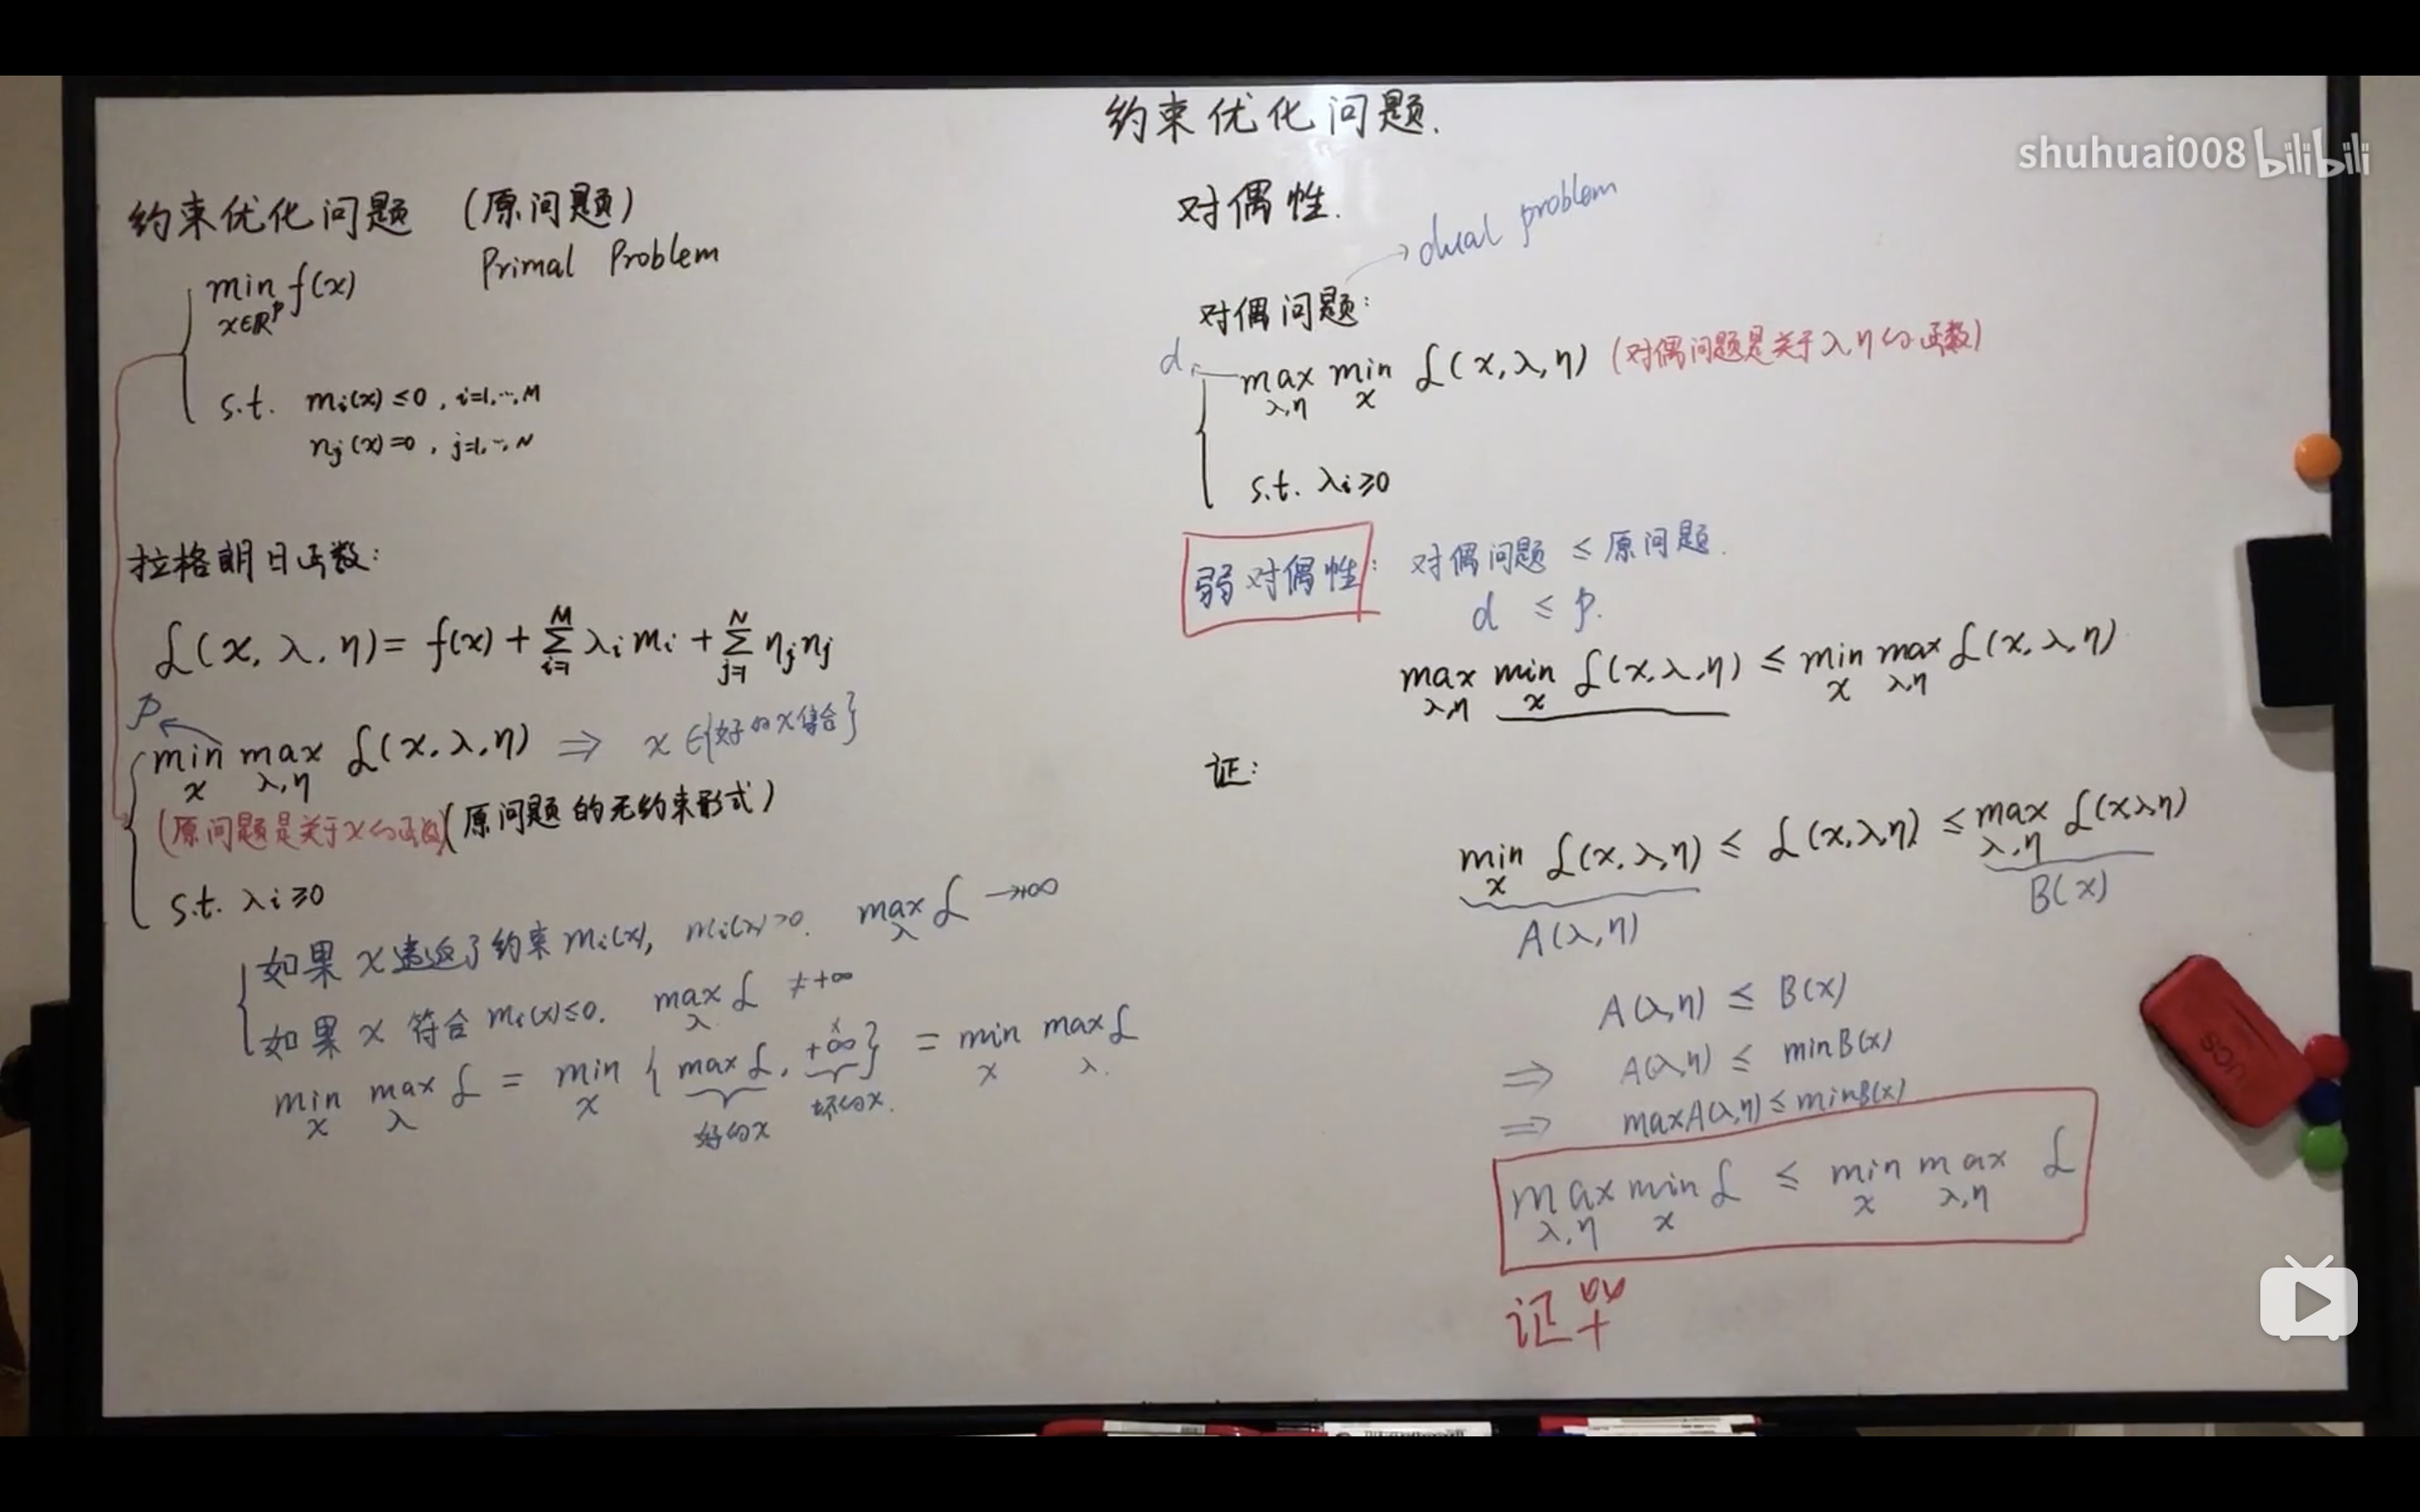 约束优化问题.
shuhuai008 bilibili
约束优化问题 (原问题)
Primal Problem
min f(x)
x∈ℝᵖ
s.t. mᵢ(x) ≤ 0, i=1,…,M
nⱼ(x)=0, j=1,…,N
拉格朗日函数:
ℒ(x, λ, η) = f(x) + Σ_{i=1}^{M} λᵢ mᵢ + Σ_{j=1}^{N} ηⱼ nⱼ
p
min_x max_{λ,η} ℒ(x, λ, η) ⇒ x ∈ {好的x集合}
(原问题是关于x的函数) (原问题的无约束形式)
s.t. λᵢ ≥ 0
如果 x 违返了约束 mᵢ(x), mᵢ(x)>0. max_λ ℒ → +∞
如果 x 符合 mᵢ(x) ≤ 0. max_λ ℒ ≠ +∞
min_x max_λ ℒ = min_x { max ℒ, +∞ } = min_x max_λ ℒ
x
好的x 坏的x.
对偶性.
dual problem
对偶问题:
d
max_{λ,η} min_x ℒ(x, λ, η) (对偶问题是关于 λ, η 的函数)
s.t. λᵢ ≥ 0
弱对偶性: 对偶问题 ≤ 原问题.
d ≤ p.
max_{λ,η} min_x ℒ(x, λ, η) ≤ min_x max_{λ,η} ℒ(x, λ, η)
证:
min_x ℒ(x, λ, η) ≤ ℒ(x, λ, η) ≤ max_{λ,η} ℒ(x λ, η)
A(λ, η) B(x)
A(λ, η) ≤ B(x)
⇒ A(λ, η) ≤ min B(x)
⇒ max A(λ, η) ≤ min B(x)
max_{λ,η} min_x ℒ ≤ min_x max_{λ,η} ℒ
证毕